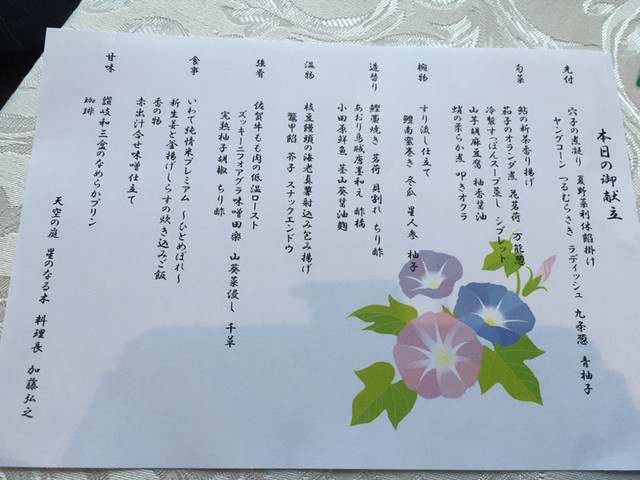 本日の御献立
先付
穴子の煮凝り 夏野菜利休餡掛け
ヤングコーン つるむらさき ラディッシュ 九条葱 青柚子
旬菜
鮎の新茶香り揚げ
茄子のオランダ煮 花茗荷 万能葱
冷製すっぽんスープ蒸し シブレット
山芋胡麻豆腐 柚香醤油
蛸の柔らか煮 叩きオクラ
椀物
すり流し仕立て
鱧南蛮巻き 冬瓜 星人参 柚子
造替り
鰹藁焼き 茗荷 貝割れ ちり酢
あおり烏賊唐墨和え 酢橘
小田原鮮魚 茎山葵醤油麹
温物
枝豆饅頭の海老真薯射込み包み揚げ
鼈甲餡 芥子 スナックエンドウ
強肴
佐賀牛もも肉の低温ロースト
ズッキーニフォアグラ味噌田楽 山葵菜浸し 千草
完熟柚子胡椒 ちり酢
食事
いわて純情米プレミアム ～ひとめぼれ～
新生姜と釜揚げしらすの炊き込みご飯
香の物
赤出汁合せ味噌仕立て
甘味
讃岐和三盆のなめらかプリン
珈琲
天空の庭 星のなる木 料理長 加藤弘之